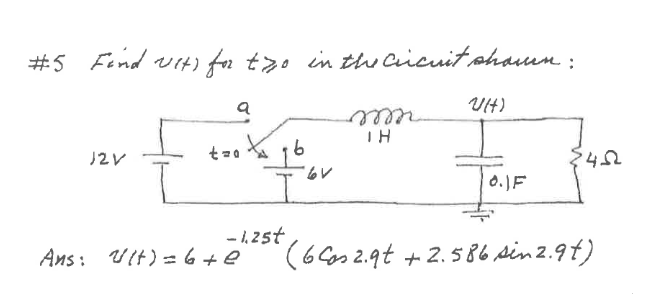 #5 Find v(t) for t≥0 in the circuit shown:
a
V(t)
1H
12V
t=0
b
6V
0.1F
4Ω
Ans: V(t) = 6 + e^{-1.25t} (6 Cos 2.9t + 2.586 sin 2.9t)